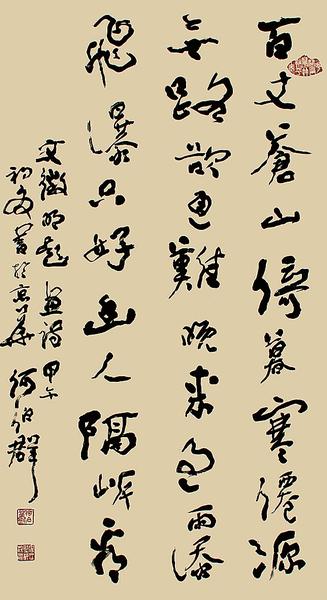 百丈蒼山倚暮寒僊源
無路欲通難晚來過雨添
飛瀑只好幽人隔岸看
文徵明題畫詩甲午
初夏書於京華何伯群